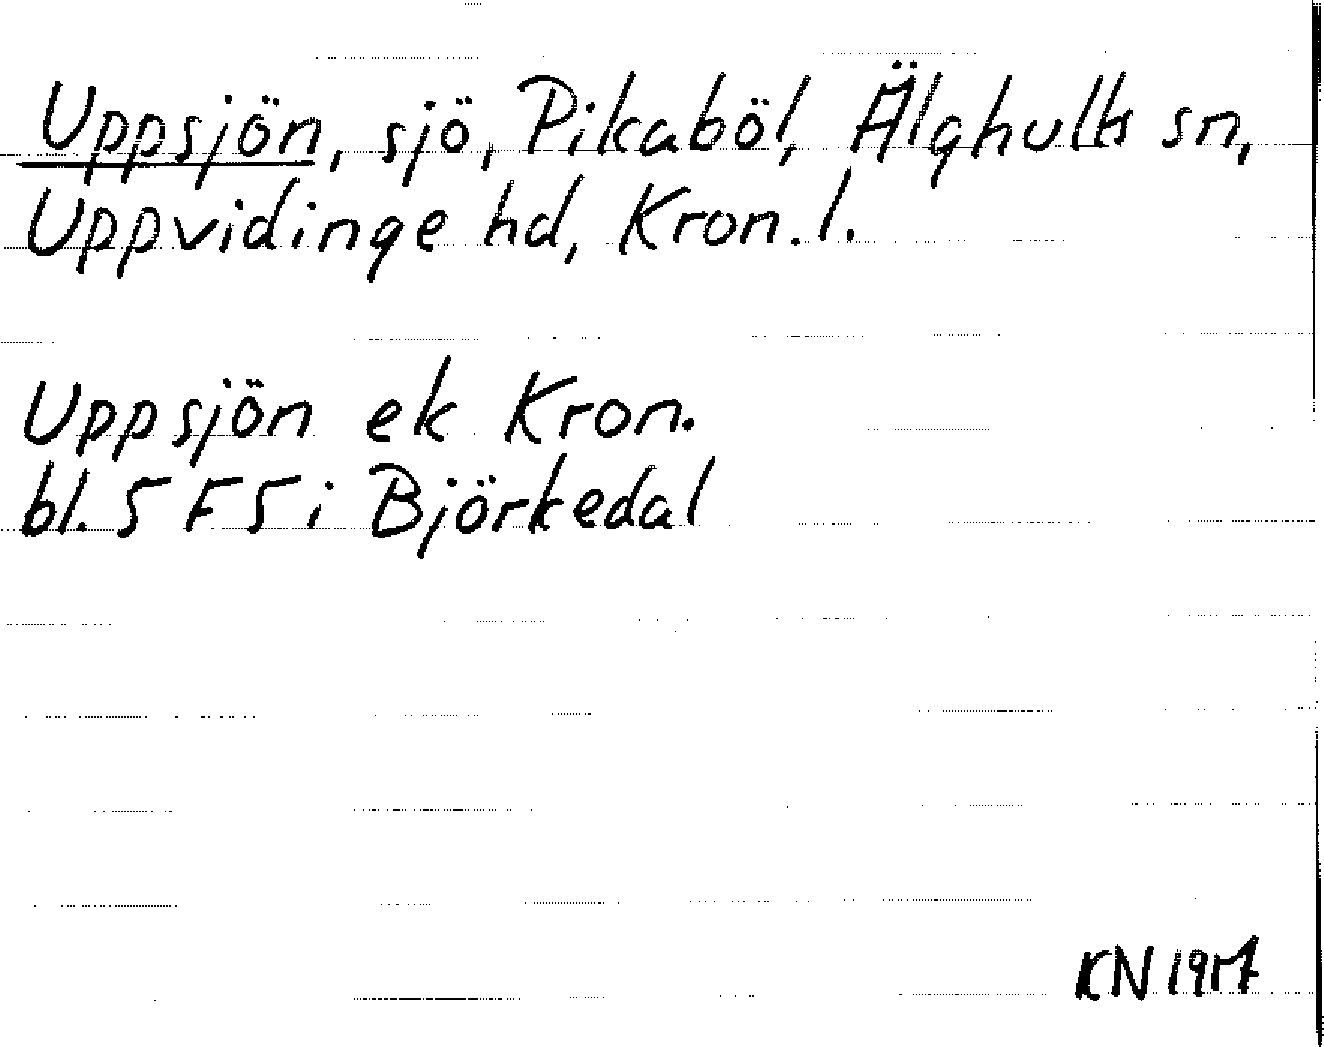 Uppsjön, sjö, Pikaböl, Älghults sn,
Uppvidinge hd, Kron. l.
Uppsjön ek Kron.
bl. 5 F5 i Björkedal
KN